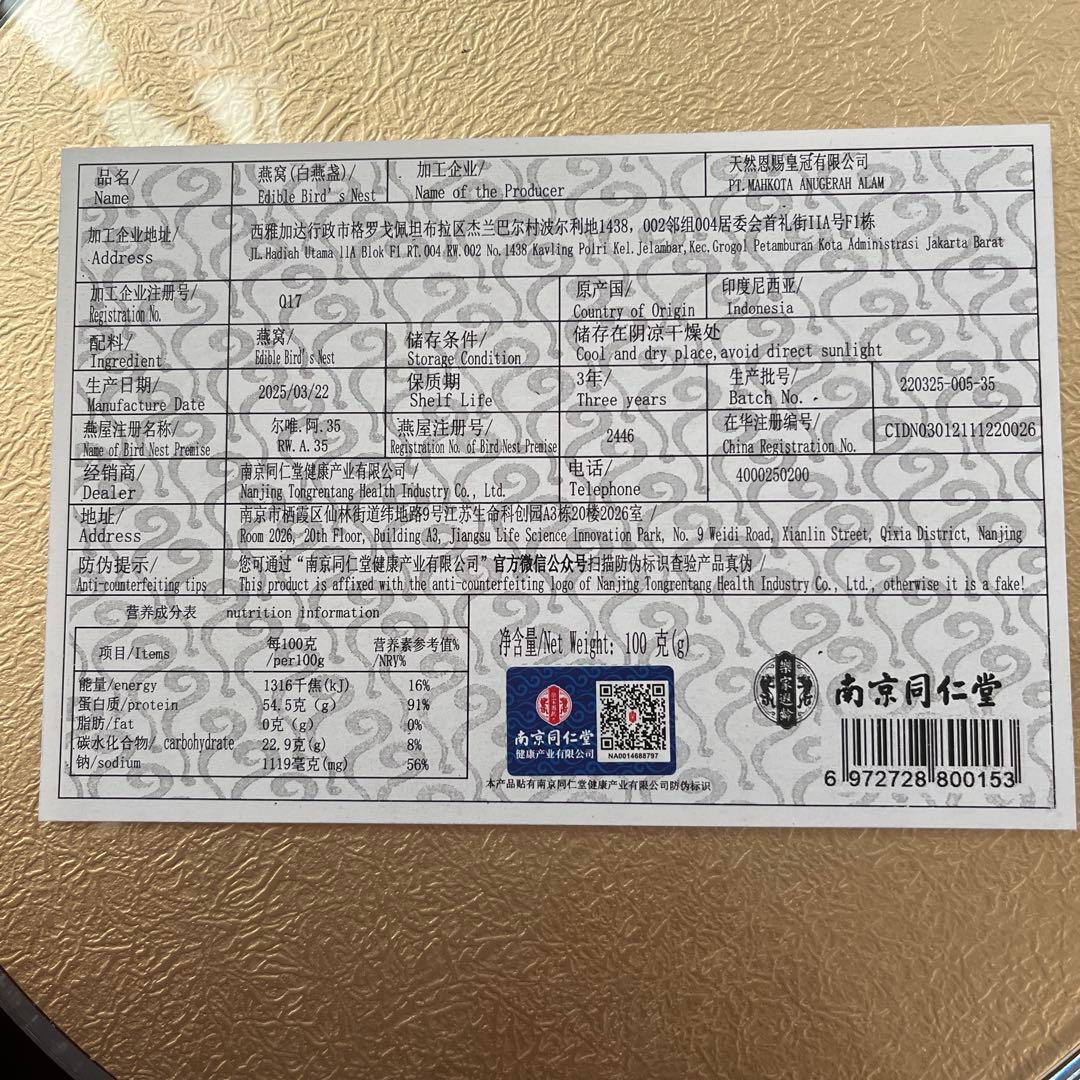 品名/ 燕窝(白燕盏)/ 加工企业/ 天然恩赐皇冠有限公司
Name Edible Bird's Nest Name of the Producer PT.MAHKOTA ANUGERAH ALAM
加工企业地址/ 西雅加达行政市格罗戈佩坦布拉区杰兰巴尔村波尔利地1438，002邻组004居委会首礼街IIA号F1栋
Address JL.Hadiah Utama 11A Blok F1 RT.004 RW.002 No.1438 Kavling Polri Kel.Jelambar,Kec.Grogol Petamburan Kota Administrasi Jakarta Barat
加工企业注册号/ Q17 原产国/ 印度尼西亚/
Registration No. Country of Origin Indonesia
配料/ 燕窝/ 储存条件/ 储存在阴凉干燥处
Ingredient Edible Bird's Nest Storage Condition Cool and dry place,avoid direct sunlight
生产日期/ 2025/03/22 保质期 3年/ 生产批号/ 220325-005-35
Manufacture Date Shelf Life Three years Batch No.
燕屋注册名称/ 尔唯.阿.35 燕屋注册号/ 2446 在华注册编号/ CIDN03012111220026
Name of Bird Nest Premise RW.A.35 Registration No. of Bird Nest Premise China Registration No.
经销商/ 南京同仁堂健康产业有限公司/ 电话/ 4000250200
Dealer Nanjing Tongrentang Health Industry Co., Ltd. Telephone
地址/ 南京市栖霞区仙林街道纬地路9号江苏生命科创园A3栋20楼2026室 /
Address Room 2026, 20th Floor, Building A3, Jiangsu Life Science Innovation Park, No. 9 Weidi Road, Xianlin Street, Qixia District, Nanjing
防伪提示/ 您可通过“南京同仁堂健康产业有限公司”官方微信公众号扫描防伪标识查验产品真伪 /
Anti-counterfeiting tips This product is affixed with the anti-counterfeiting logo of Nanjing Tongrentang Health Industry Co., Ltd., otherwise it is a fake!
营养成分表 nutrition information
项目/Items 每100克/per100g 营养素参考值%/NRV%
能量/energy 1316千焦(kJ) 16%
蛋白质/protein 54.5克 (g) 91%
脂肪/fat 0克 (g) 0%
碳水化合物/ carbohydrate 22.9克(g) 8%
钠/sodium 1119毫克(mg) 56%
净含量/Net Weight: 100 克(g)
南京同仁堂
健康产业有限公司
NA0014688797
本产品贴有南京同仁堂健康产业有限公司防伪标识
南京同仁堂
6 972728 800153